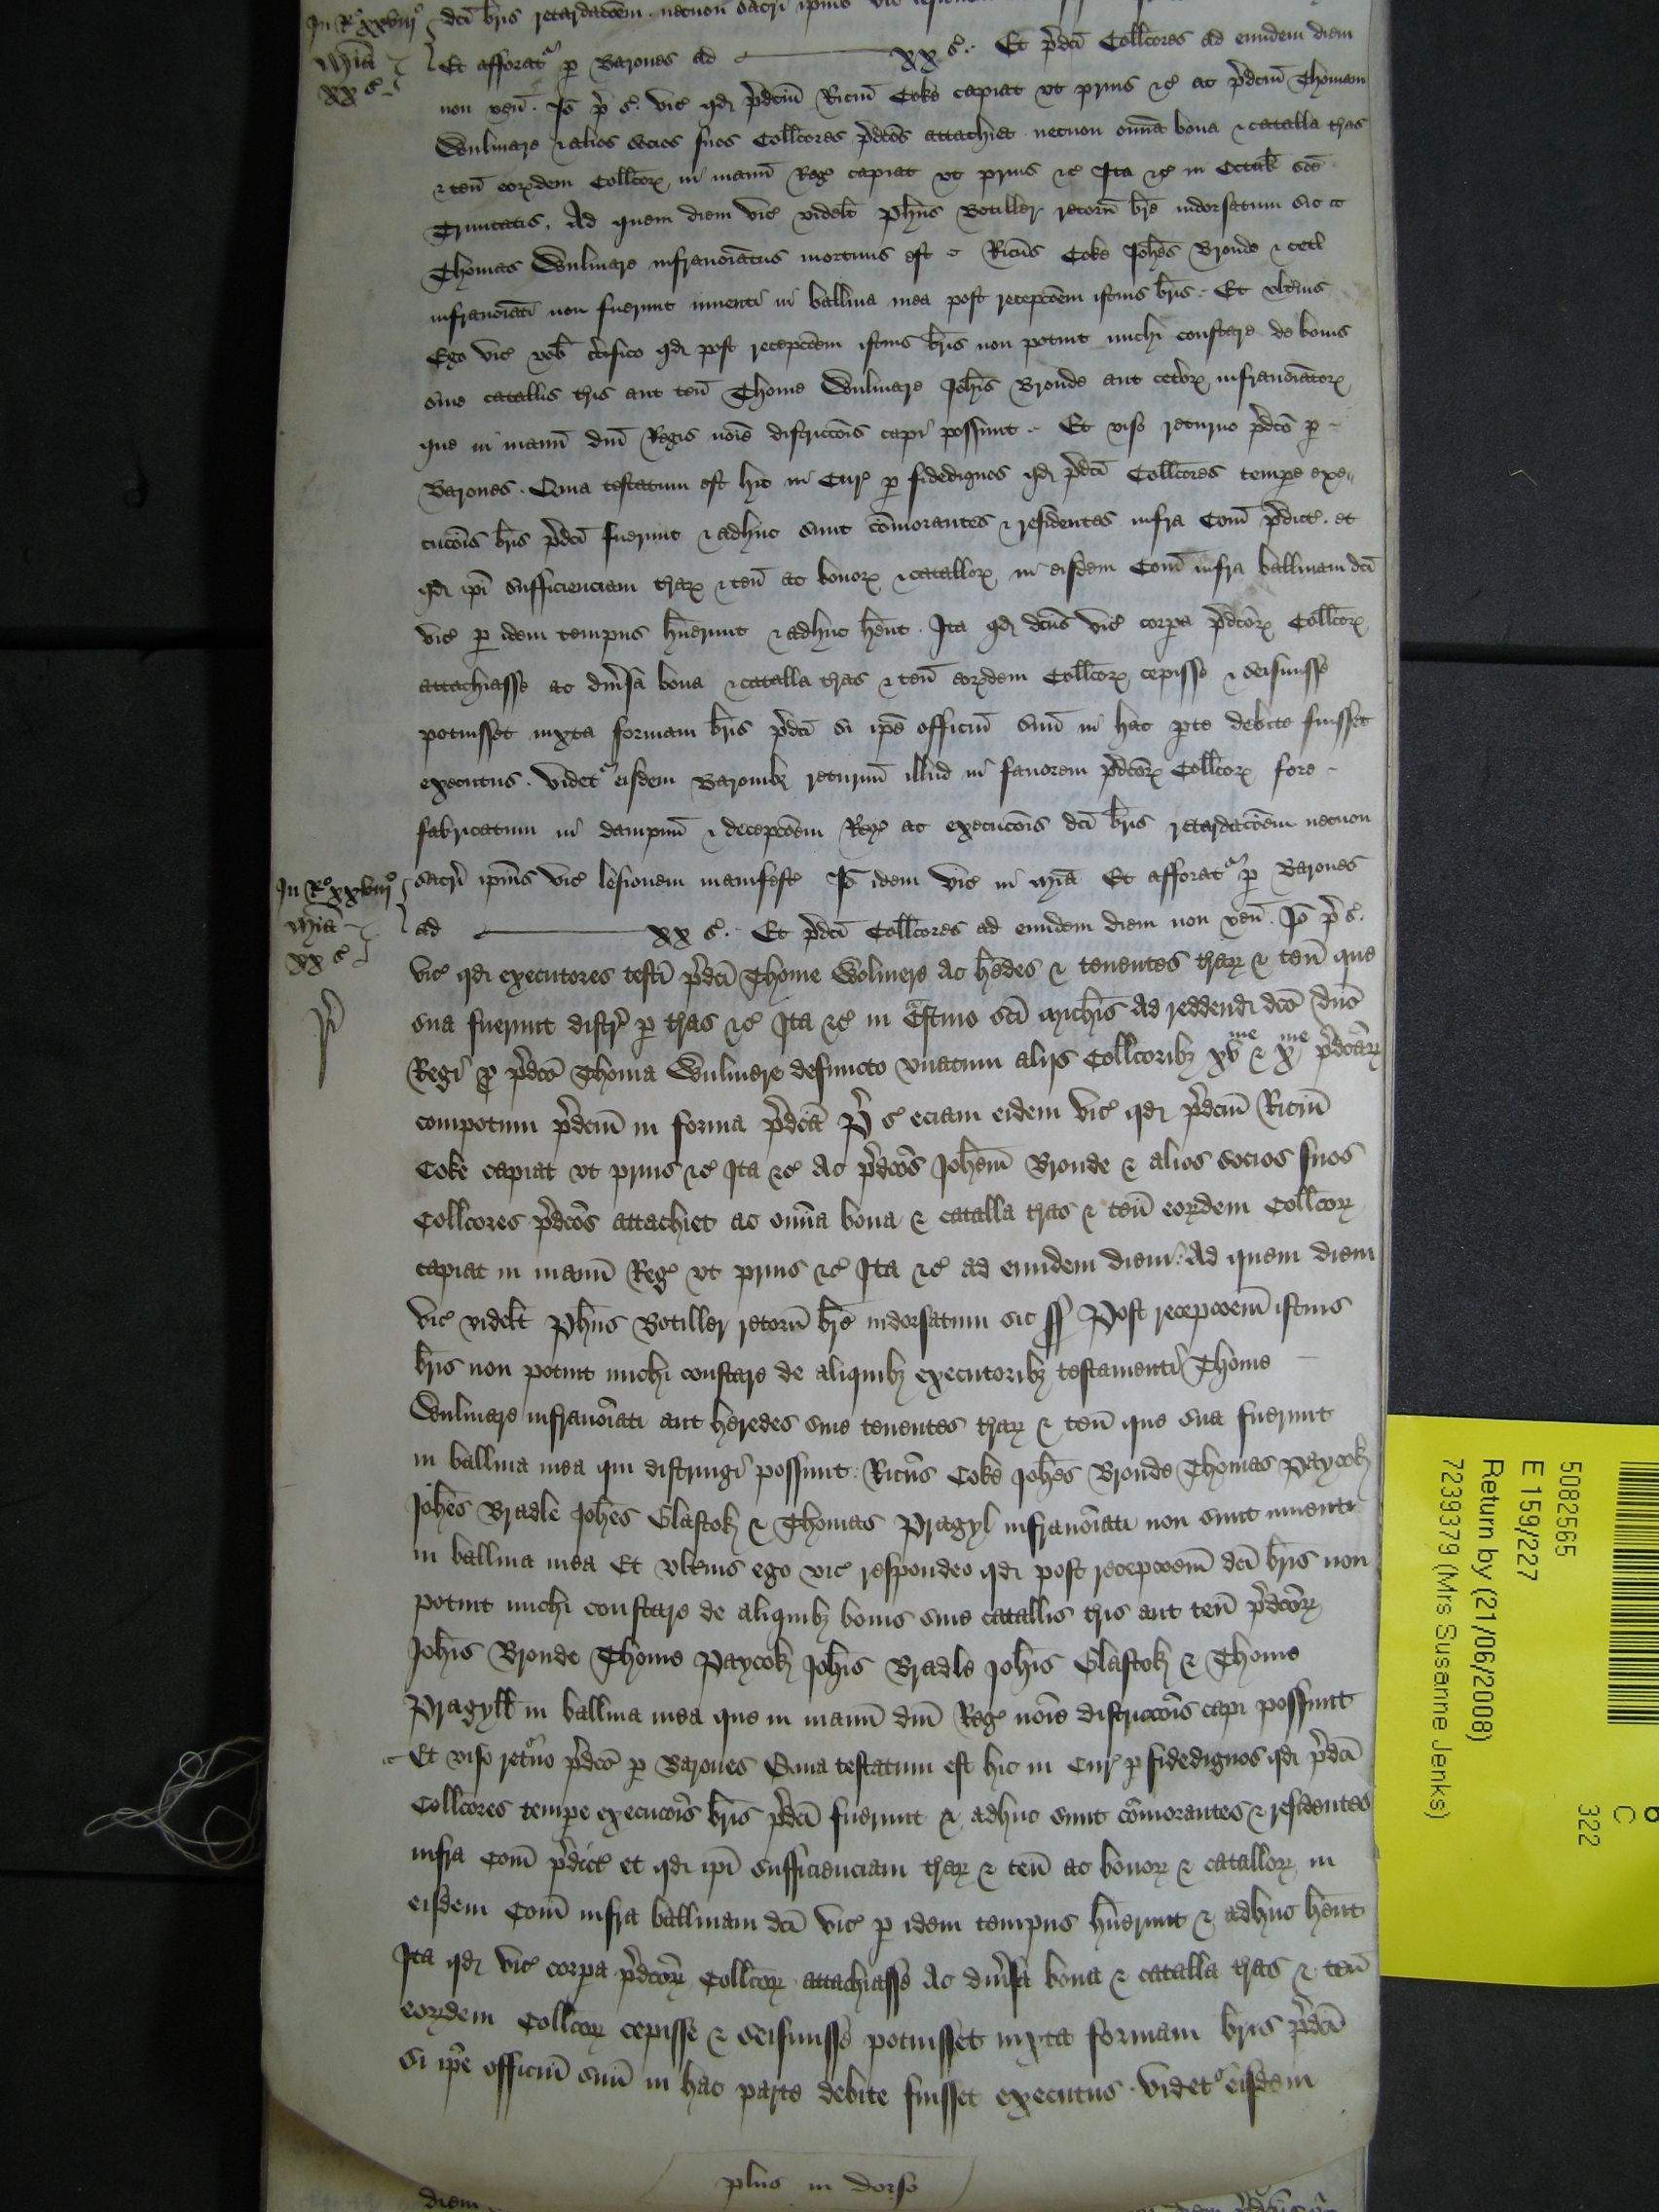 In Ro xxviijo dci bris retardacoem necnon sacri ipius vic
mia Et afforatr p Barones ad xx s. Et pdci Collcores ad eundem diem
xx s non ven. Io pr s. vic qd pdcm Ricm Coke capiat vt prius &c ac pdcm Thomam
Wulmare & alios socios suos Collcores pdcos attachiet necnon omia bona & catalla tras
& ten eorzdem Collcorz in manu Reg capiat vt prius &c Ita &c in Octab sce
Trinitatis. Ad quem diem vic videlt Phus Botiller retorn bre indorsatum sic
Thomas Wulmare infranoiatus mortuus est Ricus Coke Johes Bronde & cetl
infranoiati non fuerunt inuenti in balliua mea post recepcoem istius bris. Et vlterius
Ego vic vob certifico qd post recepcoem istius bris non potuit michi constare de bonis
siue catallis tris aut ten Thome Wulmare Johis Bronde aut cetorz infranoiatorz
que in manu dni Regis noie districcois capi possunt. Et viso returno pdco p
Barones. Quia testatum est hic in Cur p fidedignos qd pdci Collcores tempe exe
cucois bris pdci fuerunt & adhuc sunt comorantes & residentes infra Com pdict. et
qd ipi sufficienciam trarz & ten ac bonorz & catallorz in eisdem Com infra balliuam dci
vic p idem tempus huerunt & adhuc hent. Ita qd dcus vic corpa pdcorz Collcorz
attachiasse ac diuersa bona & catalla tras & ten eorzdem Collcorz cepisse & seisiuisse
potuisset iuxta formam bris pdci si ipe officiu suu in hac pte debite fuisset
executus. videtr eisdem Baronibz returnu illud in fauorem pdcorz Collcorz fore
fabricatum in dampnu & decepcoem Reg ac execucois dci bris retardacoem necnon
In Ro xxviijo sacri ipius vic lesionem manifeste Io idem vic in mia Et afforatr p Barones
mia ad xx s. Et pdci Collcores ad eundem diem non ven. Io pr s.
xx s vic qd executores testi pdci Thome Wolmere Ac hedes & tenentes trarz & ten que
pr sua fuerunt distr p tras &c Ita &c in Crastino sci Michis Ad reddend dco dno
Regi p pdco Thoma Wulmere defuncto vnacum alijs Collcoribz xvme & xme pdcarz
compotum pdcm in forma pdca Pr s eciam eidem vic qd pdcm Ricm
Coke capiat vt prius &c Ita &c Ac pdcos Johem Bronde & alios socios suos
Collcores pdcos attachiet ac omia bona & catalla tras & ten eorzdem Collcorz
capiat in manu Reg vt prius &c Ita &c ad eundem diem. Ad quem diem
vic videlt Phus Botiller retorn bre indorsatum sic Post recepcoem istius
bris non potuit michi constare de aliquibz executoribz testamenti Thome
Wulmare infranoiati aut heredes siue tenentes trarz & ten que sua fuerunt
in balliua mea qui distringi possunt. Ricus Coke Johes Bronde Thomas Paycok
Johes Bradle Johes Glastok & Thomas Pragyl infranoiati non sunt inuenti
in balliua mea Et vlterius ego vic respondeo qd post recepcoem dci bris non
potuit michi constare de aliquibz bonis siue catallis tris aut ten pdcorz
Johis Bronde Thome Paycok Johis Bradle Johis Glastok & Thome
Pragyll in balliua mea que in manu dni Reg noie districcois capi possunt
Et viso returno pdco p Barones Quia testatum est hic in Cur p fidedignos qd pdci
Collcores tempe execucois bris pdci fuerunt & adhuc sunt comorantes & residentes
infra Com pdict et qd ipi sufficienciam trarz & ten ac bonorz & catallorz in
eisdem Com infra balliuam dci vic p idem tempus huerunt & adhuc hent
Ita qd vic corpa pdcorz Collcorz attachiasse Ac diuersa bona & catalla tras & ten
eorzdem Collcorz cepisse & seisiuisse potuisset iuxta formam bris pdci
si ipe officiu suu in hac parte debite fuisset executus. videtr eisdem
plus in dorso
5082565
E 159/227
Return by (21/06/2008)
7239379 (Mrs Susanne Jenks)
C
322